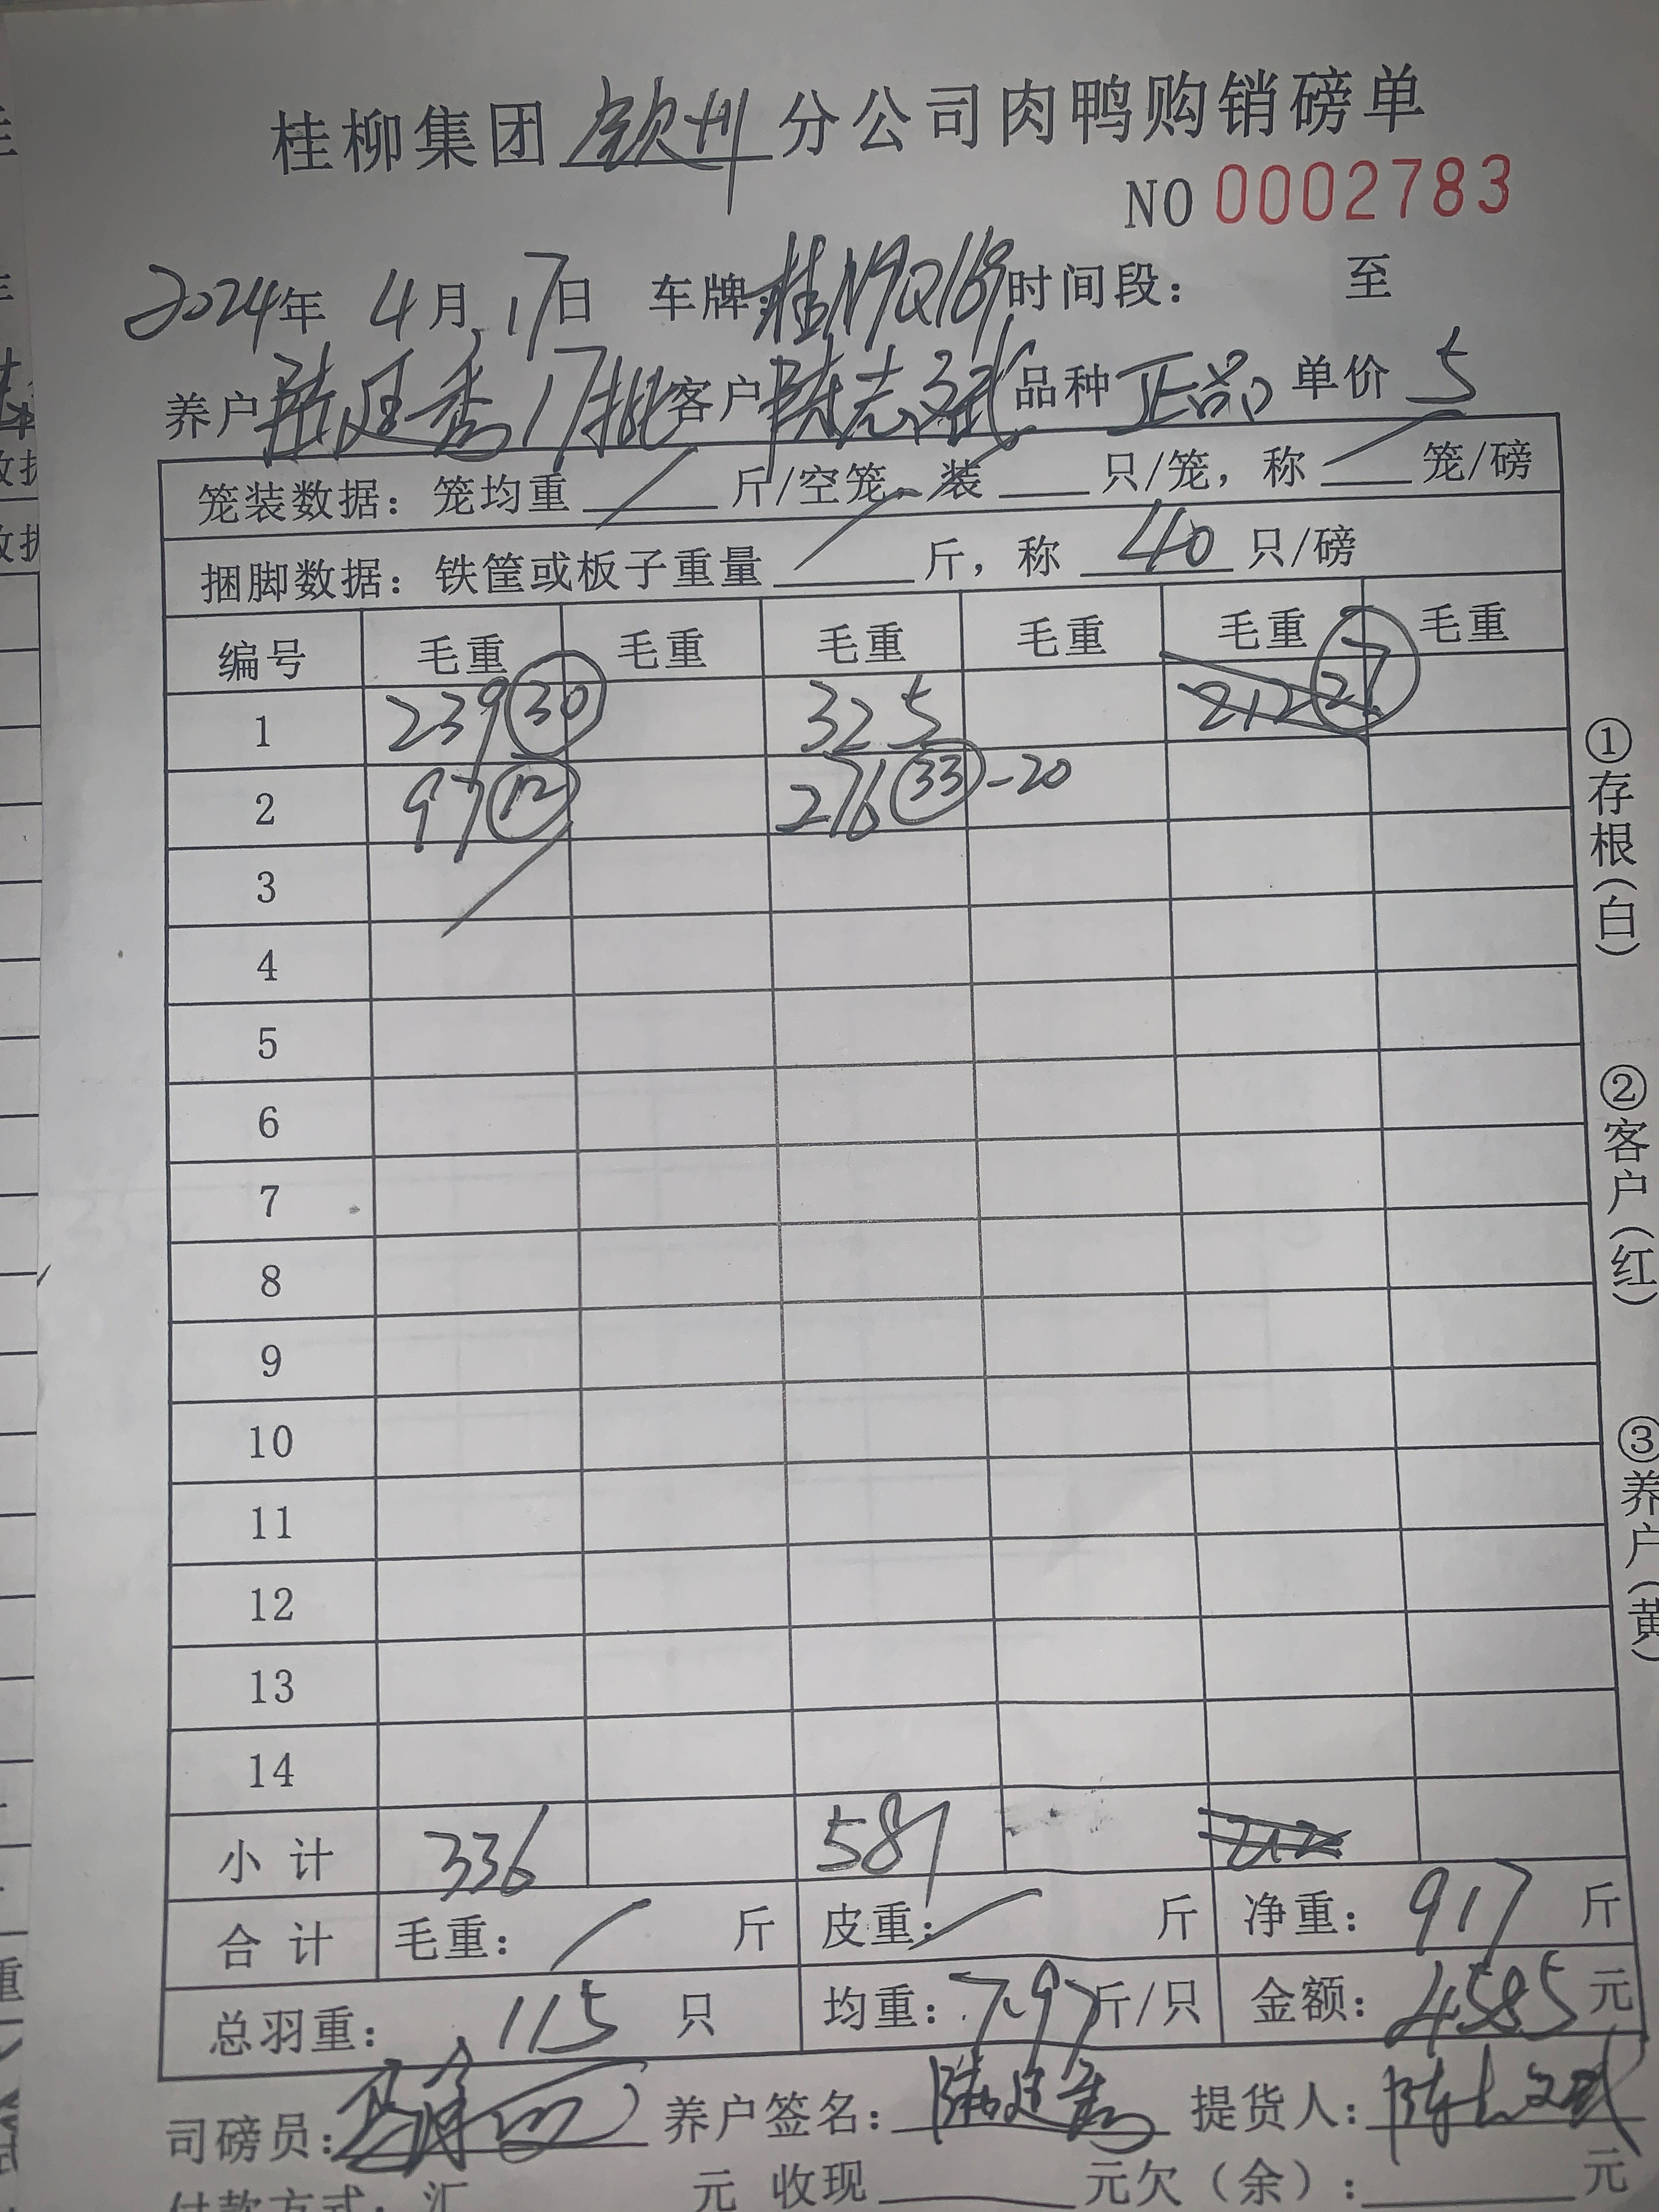 桂柳集团 钦州 分公司肉鸭购销磅单
NO 0002783
2024年 4月 17日 车牌:桂N9Q169 时间段: 至
养户 陆廷秀17批 客户 陈志斌 品种 正品 单价 5
笼装数据: 笼均重 / 斤/空笼, 装 / 只/笼, 称 / 笼/磅
捆脚数据: 铁筐或板子重量 / 斤, 称 40 只/磅
编号 毛重 毛重 毛重 毛重 毛重 毛重
1 239 30 325 212 27
2 97 12 276 33 -20
3
4
5
6
7
8
9
10
11
12
13
14
小计 336 581 212
合计 毛重: / 斤 皮重: / 斤 净重: 917 斤
总羽重: 115 只 均重: 7.97 斤/只 金额: 4585 元
司磅员: 养户签名: 陆廷秀 提货人: 陈志斌
付款方式: 汇 元 收现 元欠(余): 元
①存根(白)
②客户(红)
③养户(黄)